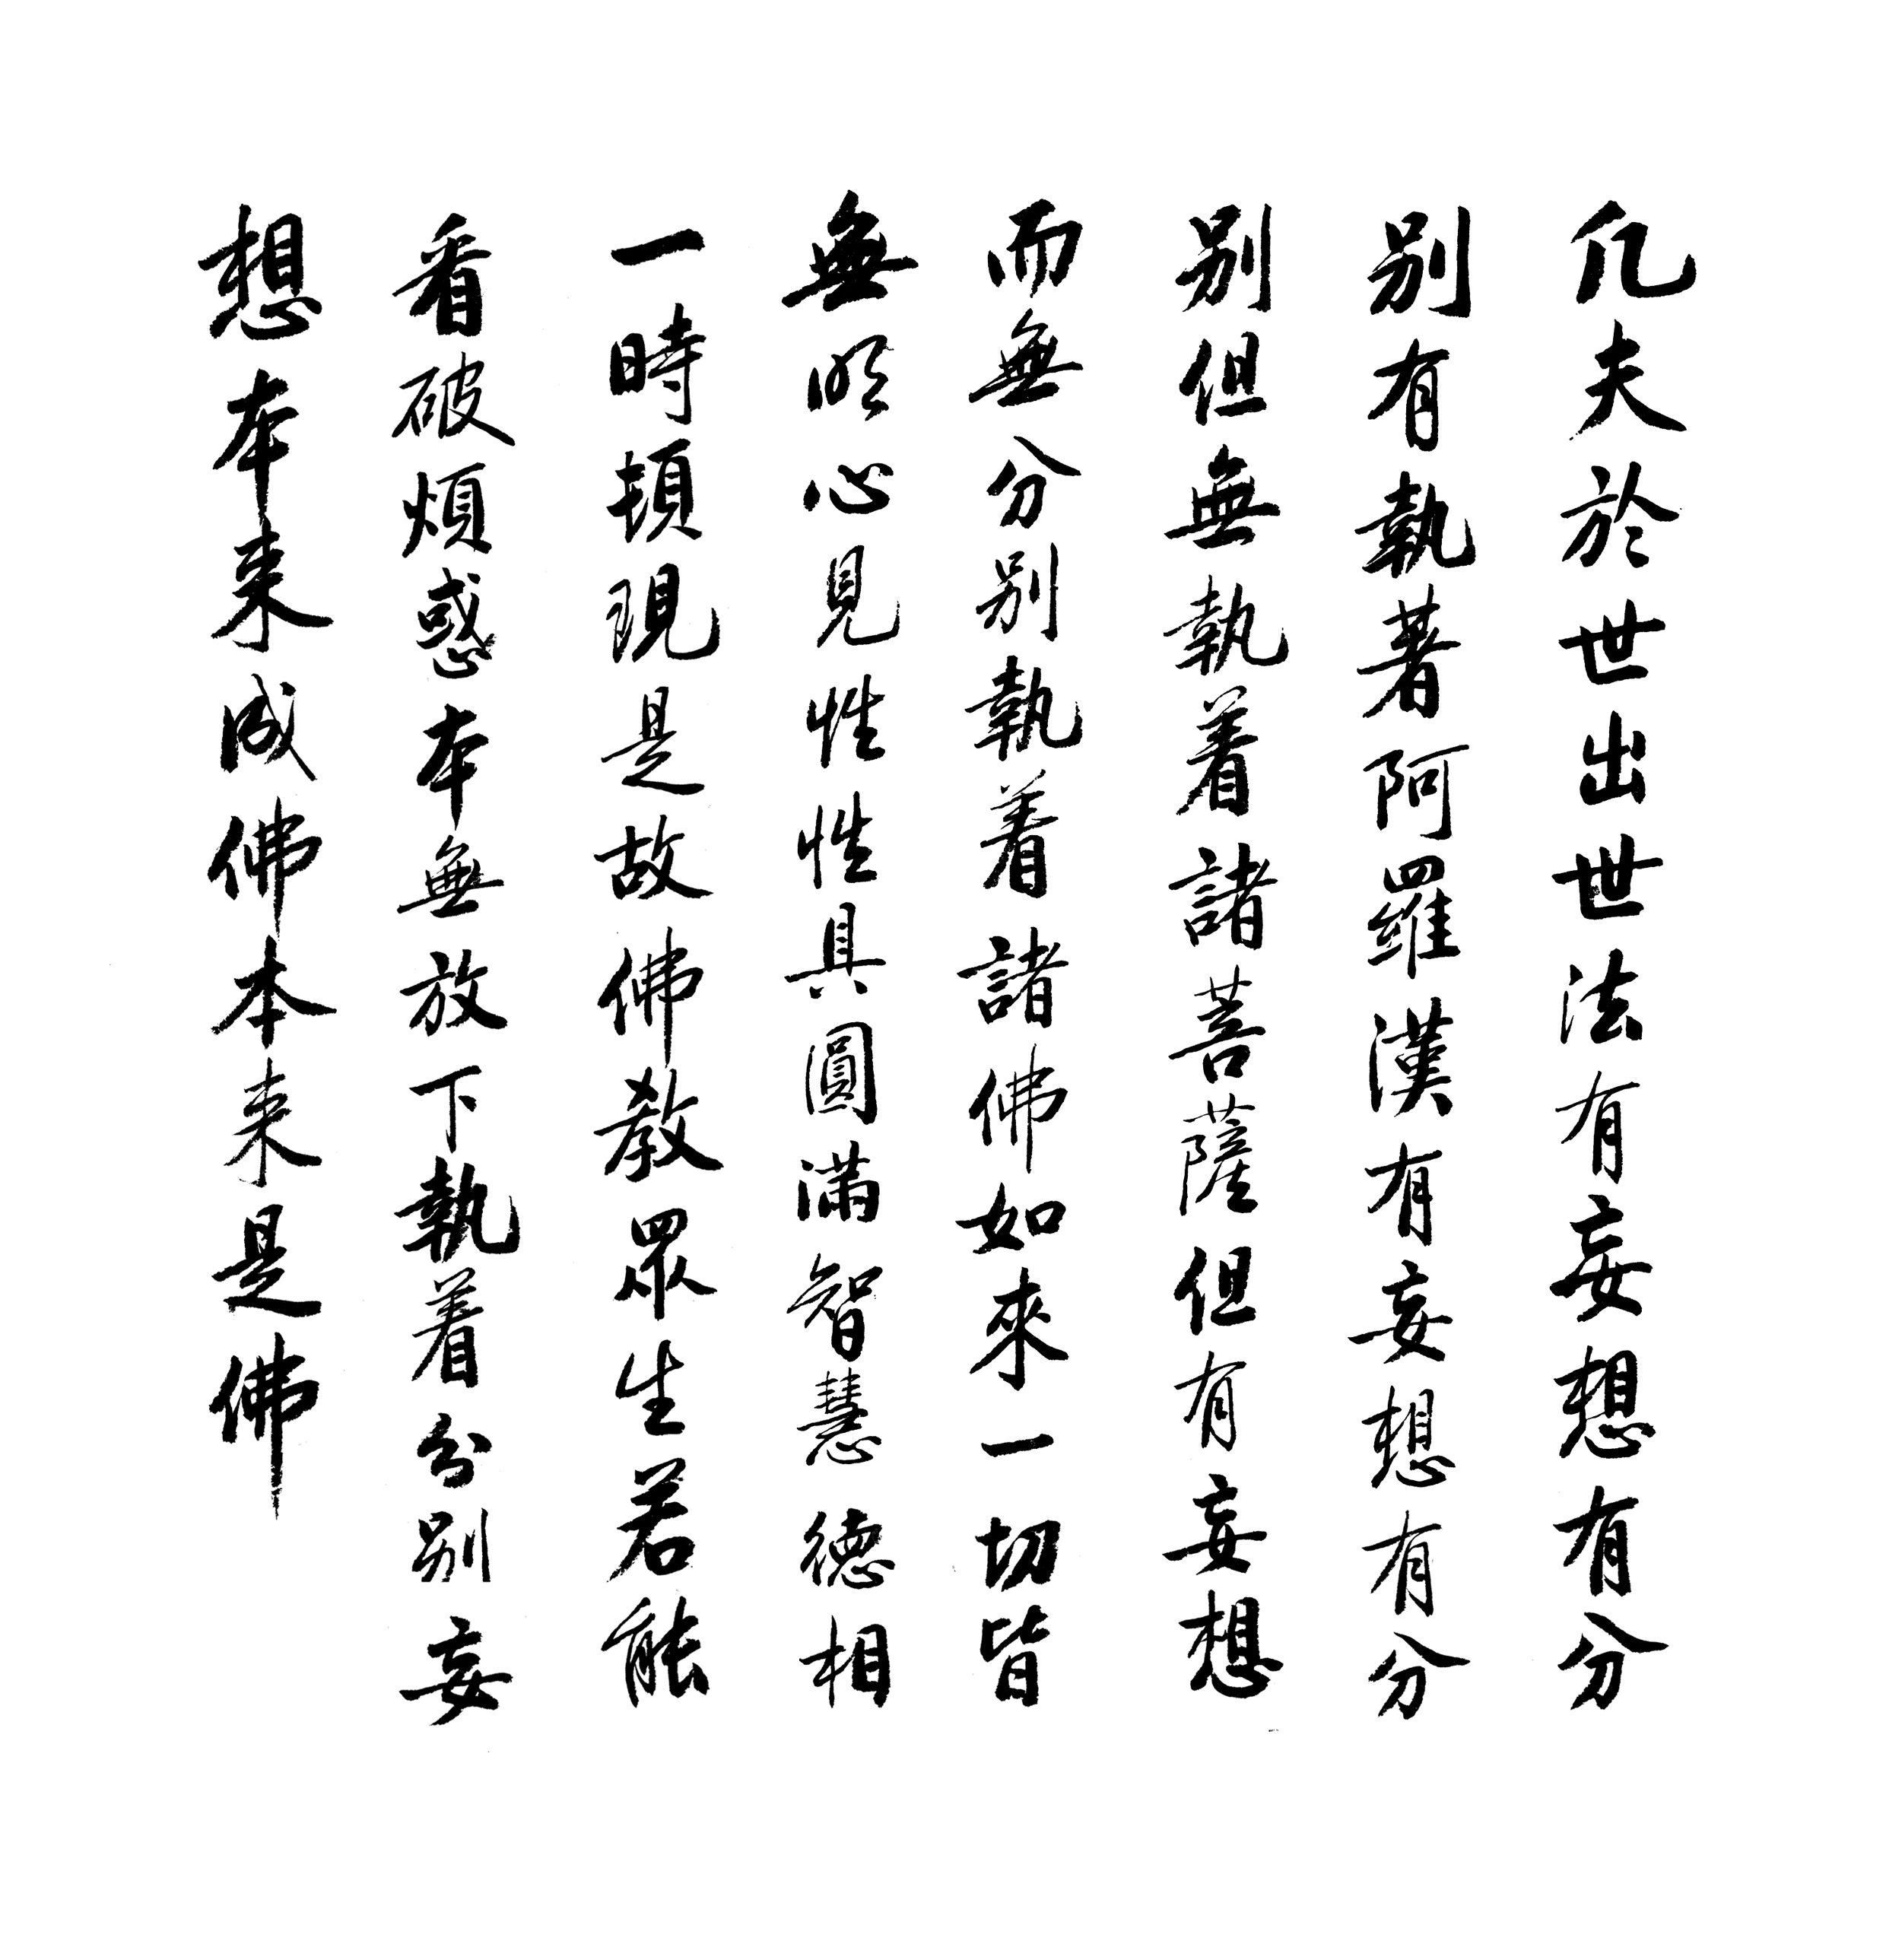 凡夫於世出世法有妄想有分
别有執著阿羅漢有妄想有分
别但無執着諸菩薩但有妄想
而無分别執着諸佛如來一切皆
無明心見性性具圓滿智慧德相
一時頓現是故佛教眾生若能
看破煩惑本無放下執着分别妄
想本来成佛本来是佛